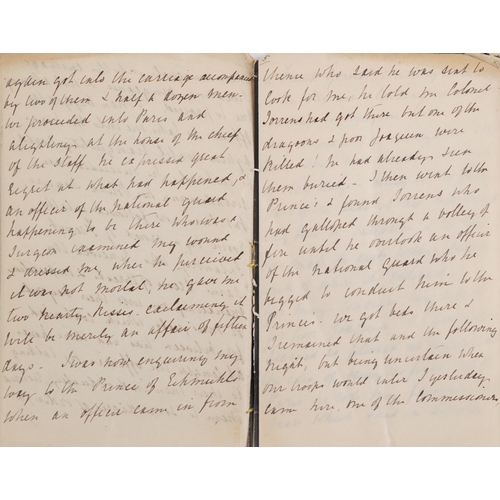 again got into the carriage accompanied
by two of them & half a dozen men.
We proceeded into Paris and
alighting at the house of the chief
of the Staff, he expressed great
regret at what had happened, &
an officer of the national guard
happening to be there who was a
Surgeon examined my wound
& dressed me, when he perceived
it was not mortal, he gave me
two hearty kisses exclaiming it
will be merely an affair of fifteen
days. I was now enquiring my
way to the Prince of Eckmuhl's
when an officer came in from
5
thence who said he was sent to
look for me, he told me Colonel
Torrens had got there but one of the
dragoons & poor Joaquin were
killed! he had already seen
them buried – I then went to the
Prince's & found Torrens who
had galloped through a volley of
fire until he overtook an officer
of the national guard who he
begged to conduct him to the
Prince. We got beds there &
I remained that and the following
night, but being uncertain when
our troops would enter I yesterday
came here, one of the Commissioners